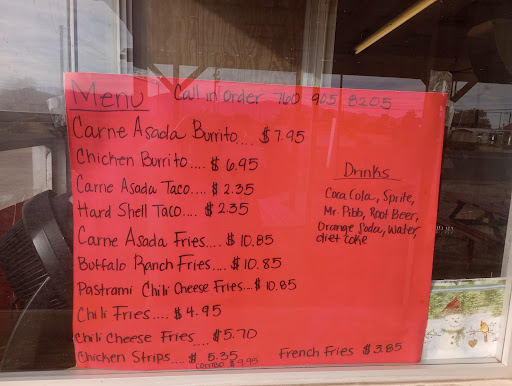 Menu Call in order 760 905 8205
Carne Asada Burrito.... $7.95
Chicken Burrito.... $6.95
Carne Asada Taco.... $2.35
Hard Shell Taco.... $2.35
Carne Asada Fries.... $10.85
Buffalo Ranch Fries.... $10.85
Pastrami Chili Cheese Fries...$10.85
Chili Fries.... $4.95
Chili Cheese Fries .... $5.70
Chicken Strips.... $5.35
Combo $9.95
French Fries $3.85
Drinks
Coca Cola, Sprite,
Mr. Pibb, Root Beer,
Orange Soda, Water,
diet coke